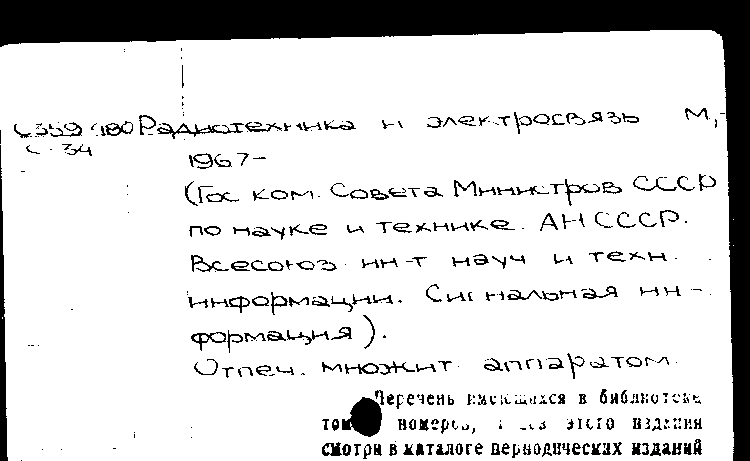 С359/180 Радиотехника и электросвязь М,-
С 34
1967-
(Гос ком. Совета Министров СССР
по науке и технике. АН СССР.
Всесоюз ин-т науч и техн.
информации. Сигнальная ин-
формация).
Отпеч. множит. аппаратом.
Перечень имеющихся в библиотеке
томов номеров, этого издания
смотри в каталоге периодических изданий